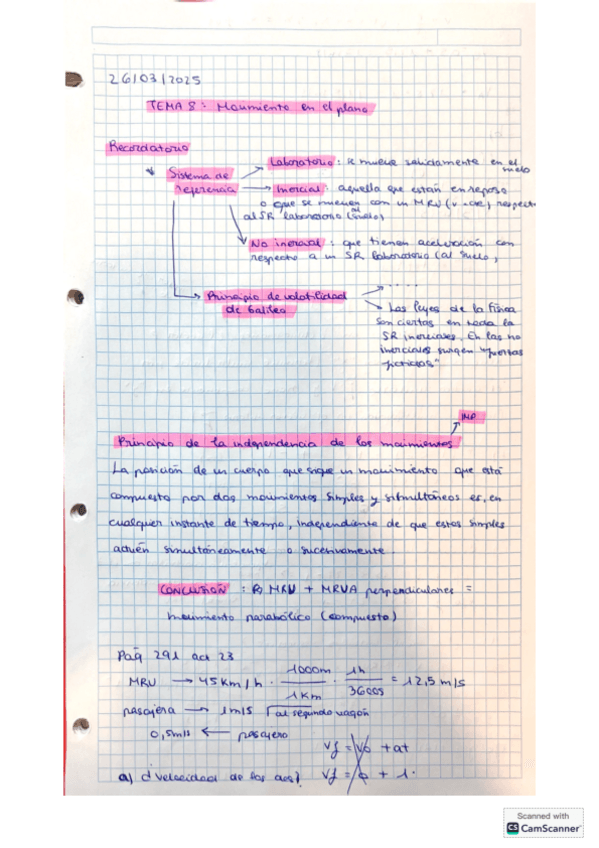 26/03/2025
TEMA 8: Movimiento en el plano
Recordatorio
Sistema de referencia
Laboratorio: se mueve solidamente en el suelo
Inercial: aquella que están en reposo
o que se mueven con un MRU (v = cte) respecto
al SR laboratorio (al suelo)
No inercial: que tienen aceleración con
respecto a un SR laboratorio (al suelo)
Principio de volatilidad
de Galileo
....
Las leyes de la Física
son ciertas en toda la
SR inerciales. En las no
inerciales surgen "fuerzas
ficticias"
IMP
Principio de la independencia de los movimientos
La posición de un cuerpo que sigue un movimiento que está
compuesto por dos movimientos simples y simultáneos es, en
cualquier instante de tiempo, independiente de que estos simples
actúen simultáneamente o sucesivamente.
CONCLUSIÓN: MRU + MRUA perpendiculares =
movimiento parabólico (compuesto)
Pág 291 act 23
MRU → 45 Km/h · 1000m / 1Km · 1h / 3600s = 12,5 m/s
pasajera → 1m/s al segundo vagón
0,5m/s ← pasajero
vf = vo + at
a) d velocidad de los dos? vf = 0 + 1·
Scanned with
CS CamScanner